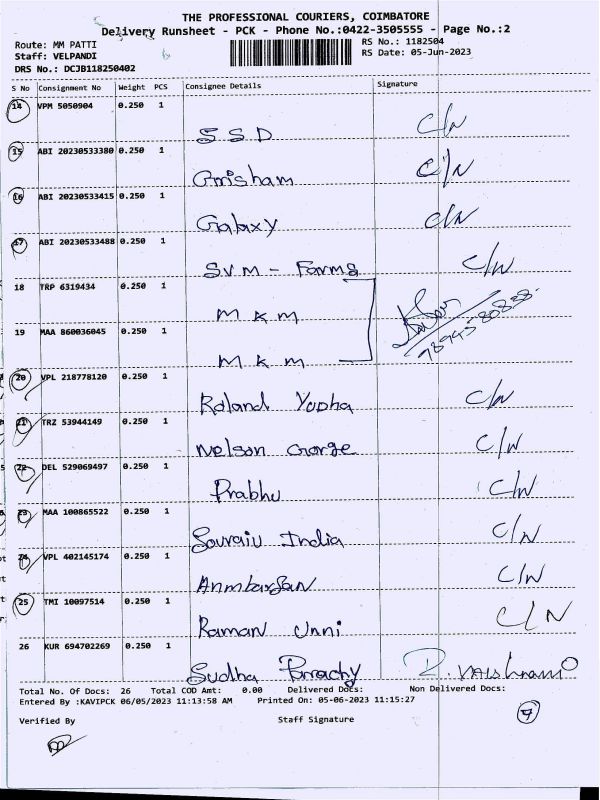 THE PROFESSIONAL COURIERS, COIMBATORE
Delivery Runsheet - PCK - Phone No.:0422-3505555 - Page No.:2
Route: MM PATTI RS No.: 1182504
Staff: VELPANDI RS Date: 05-Jun-2023
DRS No.: DCJB118250402
S No Consignment No Weight PCS Consignee Details Signature
14 VPM 5050904 0.250 1
SSD C/N
15 ABI 20230533380 0.250 1
Grisham C/N
16 ABI 20230533415 0.250 1
Galaxy C/N
17 ABI 20230533488 0.250 1
SVM - Farms C/N
18 TRP 6319434 0.250 1
MKM
19 MAA 860036045 0.250 1
MKM
20 VPL 218778120 0.250 1
Roland C/N
21 TRZ 53944149 0.250 1
Nelson Gorge C/N
22 DEL 529069497 0.250 1
Prabhu C/N
23 MAA 100865522 0.250 1
India C/N
24 VPL 402145174 0.250 1
C/N
25 TMI 10097514 0.250 1
Raman Unni C/N
26 KUR 694702269 0.250 1
Sudha
Total No. Of Docs: 26 Total COD Amt: 0.00 Delivered Docs: Non Delivered Docs:
Entered By :KAVIPCK 06/05/2023 11:13:58 AM Printed On: 05-06-2023 11:15:27
Verified By Staff Signature